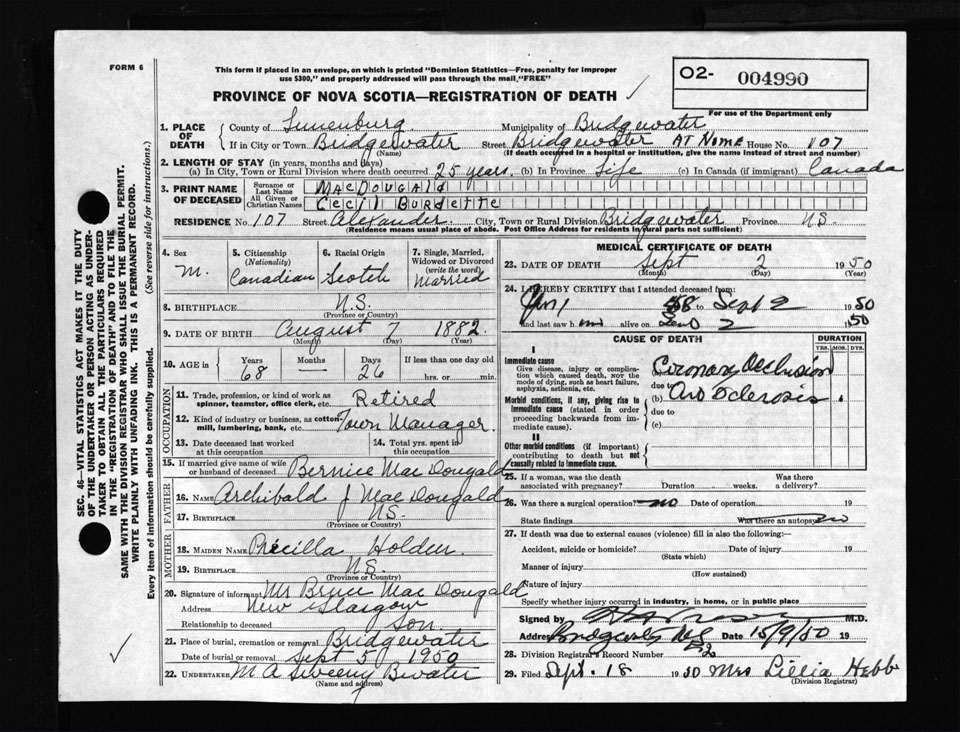 FORM 6
This form if placed in an envelope, on which is printed "Dominion Statistics—Free, penalty for improper
use $300," and properly addressed will pass through the mail, "FREE"
PROVINCE OF NOVA SCOTIA—REGISTRATION OF DEATH
O2- 004990
For use of the Department only
SEC. 46—VITAL STATISTICS ACT MAKES IT THE DUTY
OF THE UNDERTAKER OR PERSON ACTING AS UNDER-
TAKER TO OBTAIN ALL THE PARTICULARS REQUIRED
IN THE "REGISTRATION OF DEATH" AND TO FILE THE
SAME WITH THE DIVISION REGISTRAR WHO SHALL ISSUE THE BURIAL PERMIT.
WRITE PLAINLY WITH UNFADING INK. THIS IS A PERMANENT RECORD.
Every item of information should be carefully supplied. (See reverse side for instructions.)
1. PLACE OF DEATH
County of Lunenburg Municipality of Bridgewater
If in City or Town Bridgewater Street Bridgewater At Home House No. 107
(Name) (If death occurred in a hospital or institution, give the name instead of street and number)
2. LENGTH OF STAY (in years, months and days)
(a) In City, Town or Rural Division where death occurred 25 years. (b) In Province Life (c) In Canada (if immigrant) Canada
3. PRINT NAME OF DECEASED
Surname or Last Name MacDougald
All Given or Christian Names Cecil Burdette
RESIDENCE No. 107 Street Alexander City, Town or Rural Division Bridgewater Province N.S.
(Residence means usual place of abode. Post Office Address for residents in rural parts not sufficient)
4. Sex M.
5. Citizenship (Nationality) Canadian
6. Racial Origin Scotch
7. Single, Married, Widowed or Divorced (write the word) Married
8. BIRTHPLACE N.S.
(Province or Country)
9. DATE OF BIRTH August 7 1882
(Month) (Day) (Year)
10. AGE IN Years 68 Months — Days 26 If less than one day old hrs. or min.
OCCUPATION
11. Trade, profession, or kind of work as spinner, teamster, office clerk, etc. Retired
12. Kind of industry or business, as cotton-mill, lumbering, bank, etc. Town Manager.
13. Date deceased last worked at this occupation
14. Total yrs. spent in this occupation
15. If married give name of wife or husband of deceased Bernice MacDougald
FATHER
16. NAME Archibald J MacDougald
17. BIRTHPLACE N.S.
(Province or Country)
MOTHER
18. MAIDEN NAME Pricilla Holden.
19. BIRTHPLACE N.S.
(Province or Country)
20. Signature of informant Mr Bruce MacDougald
Address New Glasgow
Relationship to deceased Son.
21. Place of burial, cremation or removal Bridgewater
Date of burial or removal Sept 5 1950
22. UNDERTAKER M A Sweeny B water
(Name and address)
MEDICAL CERTIFICATE OF DEATH
23. DATE OF DEATH Sept 2 1950
(Month) (Day) (Year)
24. I HEREBY CERTIFY that I attended deceased from:
to Sept 2 1950
and last saw him alive on 2 1950
CAUSE OF DEATH
DURATION
YRS. MOS. DYS.
I
Immediate cause
Give disease, injury or complication which caused death, NOT the mode of dying, such as heart failure, asphyxia, asthenia, etc.
Coronary Occlusion
due to
Morbid conditions, if any, giving rise to immediate cause (stated in order proceeding backwards from immediate cause).
(b) Sclerosis.
due to
(c)
II
Other morbid conditions (if important) contributing to death but not causally related to immediate cause.
25. If a woman, was the death associated with pregnancy? Duration weeks. Was there a delivery?
26. Was there a surgical operation? no Date of operation 19
State findings Was there an autopsy? no
27. If death was due to external causes (violence) fill in also the following:—
Accident, suicide or homicide? Date of injury 19
(State which)
Manner of injury
(How sustained)
Nature of injury
Specify whether injury occurred in industry, in home, or in public place
Signed by M.D.
Address Bridgewater NS Date 15/9/50 19
28. Division Registrar's Record Number 52
29. Filed Sept. 18 1950 Mrs Lillia Hebb
(Division Registrar)